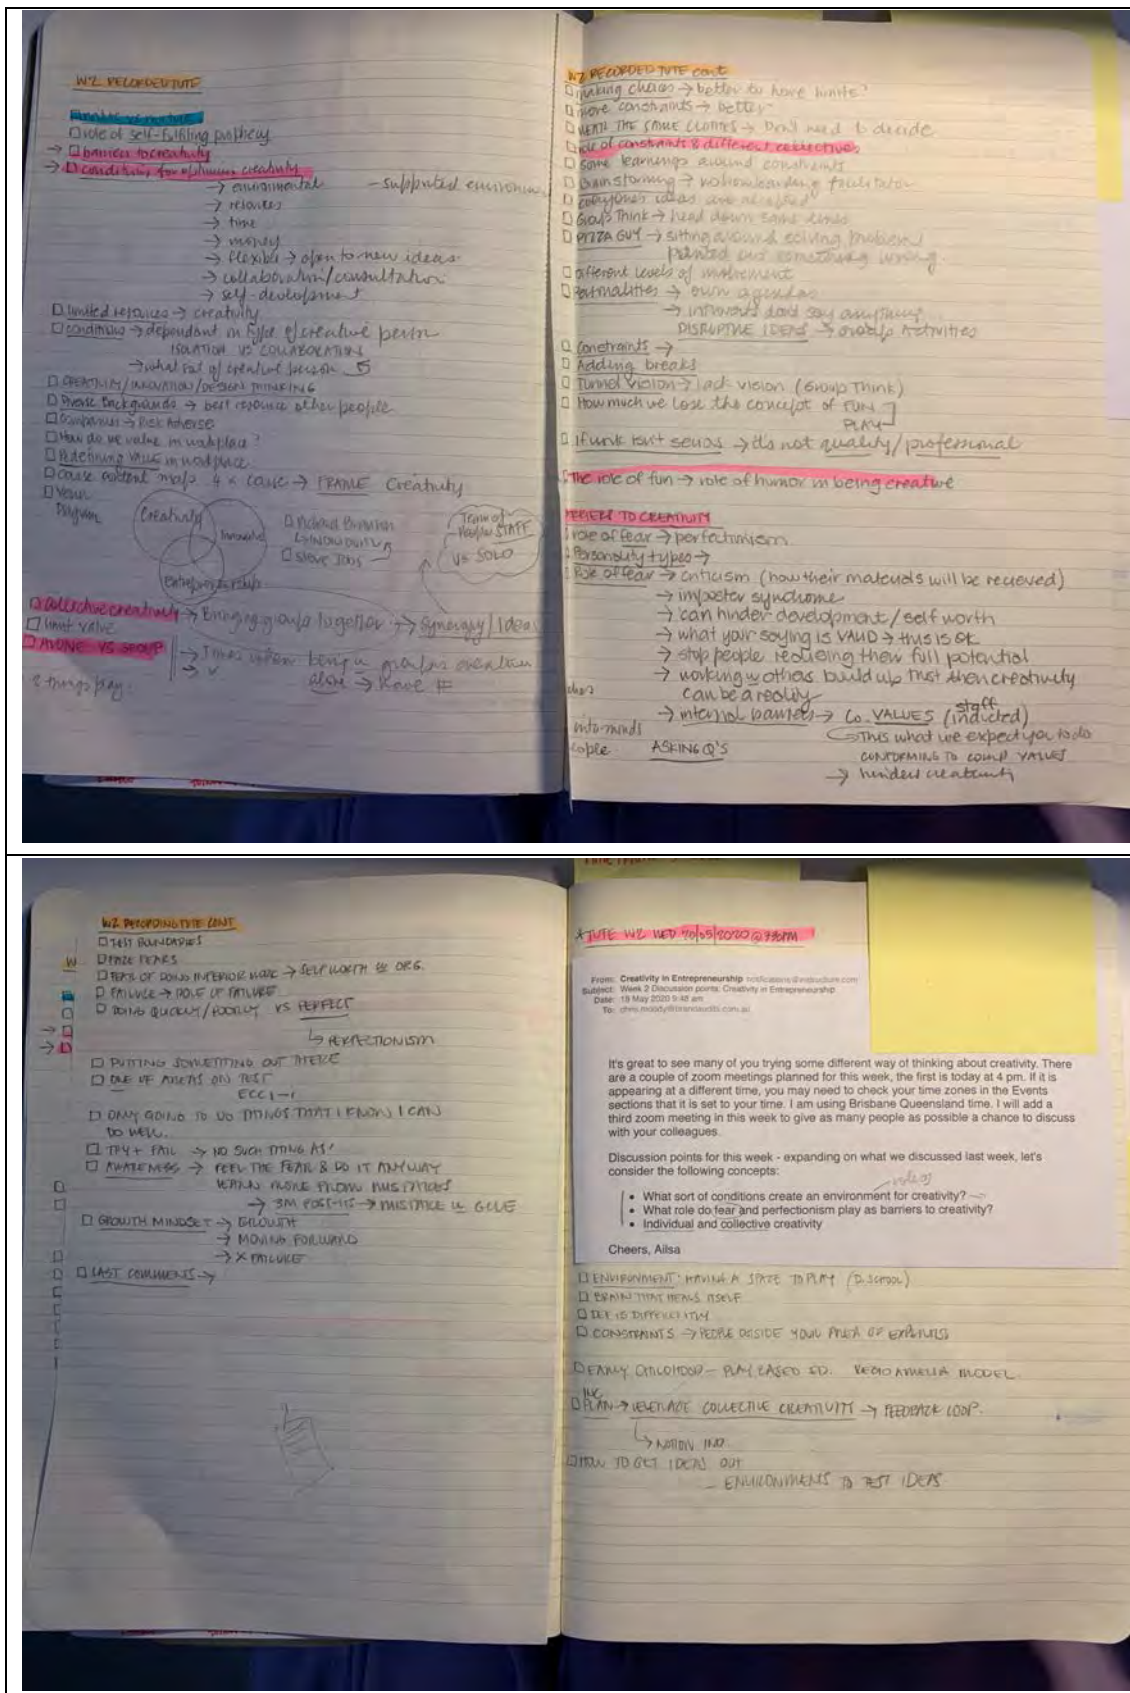 W2 RECORDED TUTE
☐ role of self-fulfiling prophecy
→ ☐ barriers to creativity
→ ☐ conditions for optimum creativity
→ environmental - supported environ
→ resources
→ time
→ money
→ flexible → open to new ideas
→ collaboration/consultation
→ self-development
☐ limited resources → creativity
☐ conditions → dependant on type of creative person
ISOLATION VS COLLABORATION
→ what sort of creative person
☐ CREATIVITY/INNOVATION/DESIGN THINKING
☐ Diverse Backgrounds → best resource other people
☐ Companies → Risk Adverse
☐ How do we value in workplace?
☐ Redefining VALUE in workplace
☐ Course content maps 4 x course → FRAME Creativity
☐ Venn
Diagram
Creativity
Entrepreneurship
☐ Michael
☐ Steve Jobs
Team of
People STAFF
VS SOLO
☐ Collective creativity → Bringing groups together → synergy/Ideas
☐ limit value
☐ ALONE VS GROUP → Times when being in
→ ✓ alone → have
& things play.
W2 RECORDED TUTE cont
☐ making choices → better to have limits?
☐ more constraints → better
☐ WEAR THE SAME CLOTHES → Don't need to decide
☐ role of constraints & different collectives
☐ some learnings around constraints
☐ Brainstorming → facilitator
☐ everyone's ideas are accepted
☐ Group Think → head down same lines
☐ PIZZA GUY → sitting around solving problem
pointed out something wrong.
☐ different levels of involvement
☐ Personalities → own agendas
→ introverts don't say anything
DISRUPTIVE IDEAS → Activities
☐ Constraints →
☐ Adding breaks
☐ Tunnel Vision → lack vision (Group Think)
☐ How much we lose the concept of FUN
PLAY
☐ If work isn't serious → it's not quality/professional
The role of fun → role of humor in being creative
BARRIERS TO CREATIVITY
role of fear → perfectionism
Personality types →
Role of fear → criticism (how their materials will be recieved)
→ imposter syndrome
→ can hinder development/self worth
→ what your saying is VALID → this is OK
→ stop people realising their full potential
→ working w others build up trust then creativity
can be a reality
→ internal barriers → Co. VALUES (staff indicted)
This what we expect you to do
CONFORMING TO COMP VALUES
→ hinders creativity
into minds
ople
ASKING Q'S
W2 RECORDING TUTE CONT
☐ TEST BOUNDARIES
☐ FACE FEARS
☐ FEAR OF DOING INFERIOR WORK → SELF WORTH ORG.
☐ FAILURE → ROLE OF FAILURE
☐ DOING QUICKLY/POORLY VS PERFECT
↳ PERFECTIONISM
☐ PUTTING SOMETHING OUT THERE
☐ ON TEST
☐ ONLY GOING TO DO THINGS THAT I KNOW I CAN
DO WELL.
☐ TRY + FAIL → NO SUCH THING AS!
☐ AWARENESS → FEEL THE FEAR & DO IT ANYWAY
LEARN MORE FROM MISTAKES
→ 3M POST-ITS → MISTAKE GLUE
☐ GROWTH MINDSET → GROWTH
→ MOVING FORWARD
→ X FAILURE
☐ LAST COMMENTS →
* TUTE W2 WED 20/05/2020 @
From: Creativity in Entrepreneurship notifications@instructure.com
Subject: Week 2 Discussion points: Creativity in Entrepreneurship
Date: 18 May 2020 9:48 am
To: chris.moody@brandaudits.com.au
It's great to see many of you trying some different way of thinking about creativity. There
are a couple of zoom meetings planned for this week, the first is today at 4 pm. If it is
appearing at a different time, you may need to check your time zones in the Events
sections that it is set to your time. I am using Brisbane Queensland time. I will add a
third zoom meeting in this week to give as many people as possible a chance to discuss
with your colleagues.
Discussion points for this week - expanding on what we discussed last week, let's
consider the following concepts:
• What sort of conditions create an environment for creativity?
• What role do fear and perfectionism play as barriers to creativity?
• Individual and collective creativity
Cheers, Ailsa
☐ ENVIRONMENT: HAVING A SPACE TO PLAY (D.SCHOOL)
☐ BRAIN THAT HEALS ITSELF
☐ DIFFERENTLY
☐ CONSTRAINTS → PEOPLE OUTSIDE YOUR AREA OF EXPERTISE
☐ EARLY CHILDHOOD - PLAY BASED ED. REGIO AMELIA MODEL.
INC
☐ PLAN → LEVERAGE COLLECTIVE CREATIVITY → FEEDBACK LOOP.
☐ HOW TO GET IDEAS OUT
- ENVIRONMENTS TO TEST IDEAS